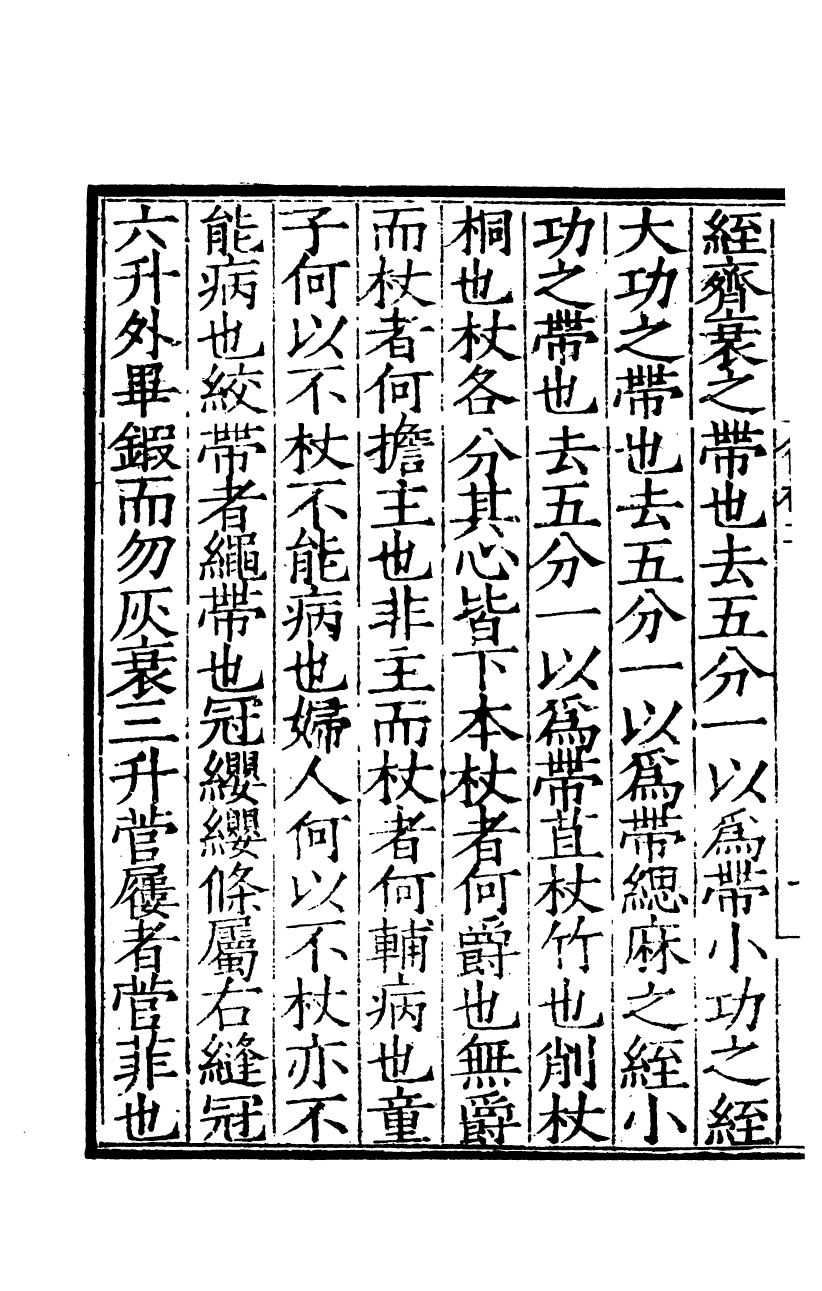 絰齊衰之帶也去五分一以爲帶小功之絰
大功之帶也去五分一以爲帶緦麻之絰小
功之帶也去五分一以爲帶苴杖竹也削杖
桐也杖各分其心皆下本杖者何爵也無爵
而杖者何擔主也非主而杖者何輔病也童
子何以不杖不能病也婦人何以不杖亦不
能病也絞帶者繩帶也冠纓纓條屬右縫冠
六升外畢鍜而勿灰衰三升菅屨者菅菲也